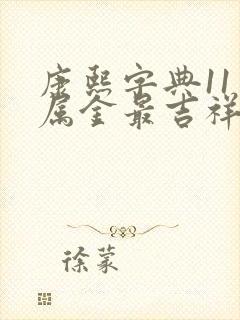 康熙字典11
属金最吉祥
徐蒙